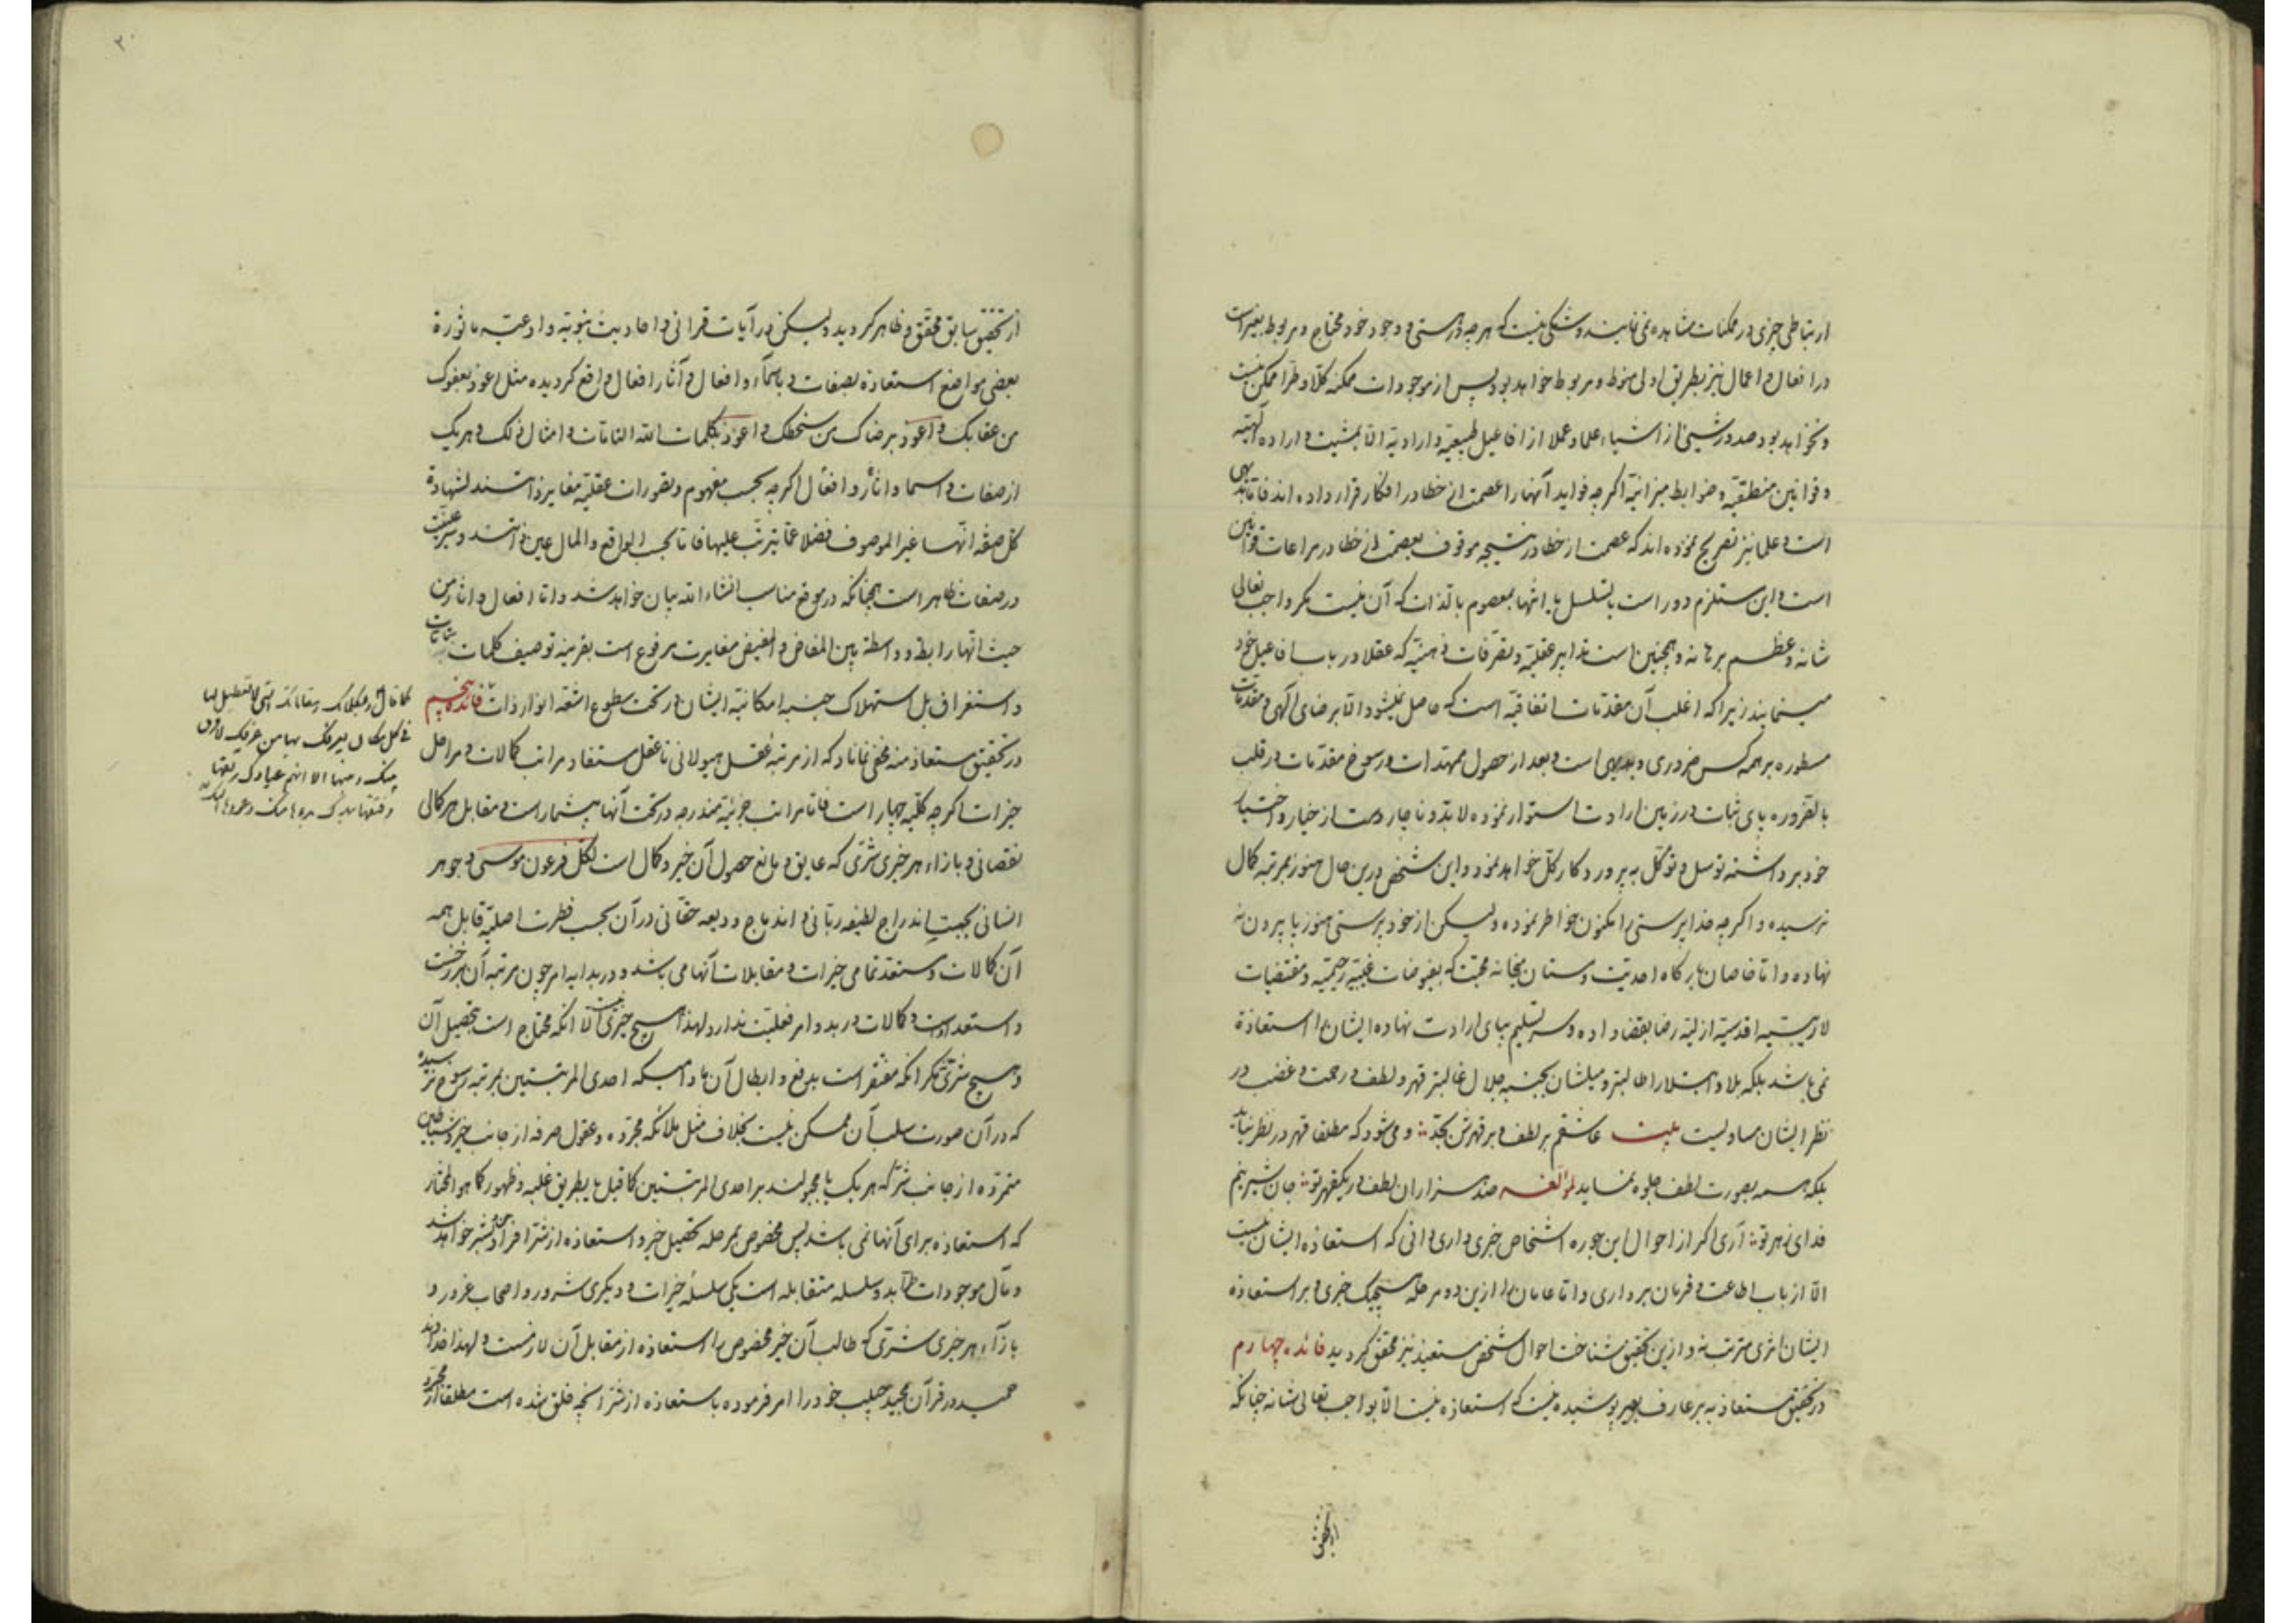 ارتباطی چیزی در ممکنات مشاهده نمی‌نمایند و شکی نیست که هر چه در هستی و وجود خود محتاج و مربوط بغیر است
در افعال و اعمال نیز بطریق اولی منوط و مربوط خواهد بود پس از موجودات ممکنه کلا و طرا ممکن نیست
و نخواهد بود صدور شیئی از اشیاء علما و عملا از افاعیل طبیعیه و ارادیه الا بمشیت و اراده الهیه
و قوانین منطقیه و ضوابط میزانیه اگر چه فواید آنها را عصمت از خطا در افکار قرار داده‌اند فاما بدیهی
است و علما نیز تصریح نموده‌اند که عصمت از خطا در نتیجه موقوف بعصمت از خطا در مراعات قوانین
است و این مستلزم دور است یا تسلسل یا انتها بمعصوم بالذات که آن نیست مگر واجب تعالی
شانه و عظم برهانه و همچنین است تدابیر عقلیه و تصرفات ذهنیه که عقلا در باب افاعیل خود
مینمایند زیرا که اغلب آن مقدمات اتفاقیه است که حاصل نمیشود الا برضای الهی و مقدمات
مسطوره بر همه کس ضروری و بدیهی است و بعد از حصول ممهدات و رسوخ مقدمات در قلب
بالضروره پای ثبات در زمین ارادت استوار نموده لابد و ناچار دست از خیار و اختیار
خود برداشته توسل و توکل به پروردگار کل خواهد نمود و این شخص درین حال هنوز بمرتبه کمال
نرسیده و اگر چه خداپرستی را مکنون خواطر نموده ولیکن از خودپرستی هنوز پا بیرون نه
نهاده و اما خاصان بارگاه احدیت و مستان میخانه محبت که بفیوضات غیبیه رحیمیه و مقتضیات
لاریبیه اقدسیه ازلیه رضا بقضا داده و سر تسلیم بپای ارادت نهاده ایشان را استعاذة
نمی‌باشد بلکه بلا و ابتلا را طالبتر و میلشان بجنبه جلال غالبتر قهر و لطف و رحمت و غضب در
نظر ایشان مساویست بیت عاشقم بر لطف و بر قهرش بجد ∴ و می‌شود که مطلقا قهر در نظر نیاید
بلکه همه بصورت لطف جلوه نماید لمؤلفه صد هزاران لطف در یکقهر تو ∴ جان شیرینم
فدای زهر تو ∴ آری اگر از احوال این جوره اشخاص خبری داری دانی که استعاذه ایشان نیست
الا از باب اطاعت و فرمان برداری و اما عامان را ازین دو مرحله هیچیک خبری و بر استعاذه
ایشان اثری مترتب نه و ازین تحقیق شناخت احوال شخص مستعیذ نیز محقق گردید فائده چهارم
در تحقیق مستعاذ به بر عارف بصیر پوشیده نیست که استعاذه نیست الا بواجب تعالی شانه چنانکه
از تحقیق
۲۰
از تحقیق سابق محقق و ظاهر گردید ولیکن در آیات قرانی و احادیث نبویه و ادعیه ماثورة
بعضی مواضع استعاذه بصفات و باسماء و افعال و آثار افعال واقع گردیده مثل اعوذ بعفوک
من عقابک و اعوذ برضاک من سخطک و اعوذ بکلمات الله التامات و امثال ذلک و هر یک
از صفات و اسما و اثار و افعال اگر چه بحسب مفهوم و تصورات عقلیه مغایر ذاتند لشهادة
کل صفة انها غیر الموصوف فضلا عما یترتب علیها فاما بحسب الواقع و المال عین ذاتند و سر عینیت
در صفات ظاهر است همچنانکه در موقع مناسب انشاء الله بیان خواهد شد و اما افعال و اثار من
حیث انها رابطة و واسطة بین المفاض و المفیض مغایرت مرفوع است بقرینه توصیف کلمات بتامات
و استغراق بل استهلاک جنبه امکانیة ایشان در تحت سطوع اشعه انوار ذات فائده پنجم
در تحقیق مستعاذ منه مخفی نماناد که از مرتبه عقل هیولانی تا عقل مستفاد مراتب کمالات و مراحل
خیرات اگر چه کلیه چهار است فاما مراتب جزئیه مندرجه در تحت آنها بیشمار است و مقابل هر کمالی
نقصانی و بازاء هر خیری شری که عایق و مانع حصول آن خیر و کمال است لکل فرعون موسی و جوهر
انسانی بجهت اندراج لطیفه ربانی و اندماج ودیعه حقانی در آن بحسب فطرت اصلیه قابل همه
آن کمالات و مستعد تمامی خیرات و مقابلات آنها می باشد و در بدایه امر چون مرتبه آن مرتبه
و استعداد است و کمالات در بدو امر فعلیت ندارد لهذا هیچ خیری نیست الا انکه محتاج است بتحصیل آن
و هیچ شری مگر انکه مفتقر است بدفع و ابطال آن مادامیکه احدی المرتبتین بمرتبه رسوخ نرسیده
که در آن صورت سلب آن ممکن نیست بخلاف مثل ملائکه مجرده و عقول صرفه از جانب خیر و شیاطین
متمرده از جانب شر که هر یک یا مجبولند بر احدی المرتبتین کما قیل یا بطریق غلبه و ظهور کما هو المختار
که استعاذه برای آنها نمی باشد پس مخصوص بمرحله تحصیل خیر و استعاذه از شر افراد بشر خواهد شد
و مآل موجودات بدو سلسله متقابله است یکی سلسله خیرات و دیگری شرور و اصحاب غرور و
بازآء هر خیری شری که طالب آن خیر مخصوص را استعاذه از مقابل آن لازمست و لهذا خداوند
حمید در قرآن مجید حبیب خود را امر فرموده باستعاذه از شر انچه خلق شده است مطلقا از مجرد
کما قال و بمقاماتک التی لا تعطیل لها
فی کل مکان یعرفک بها من عرفک لا فرق
بینک و بینها الا انهم عبادک رتقها
و فتقها بیدک بدؤها منک و عودها الیک